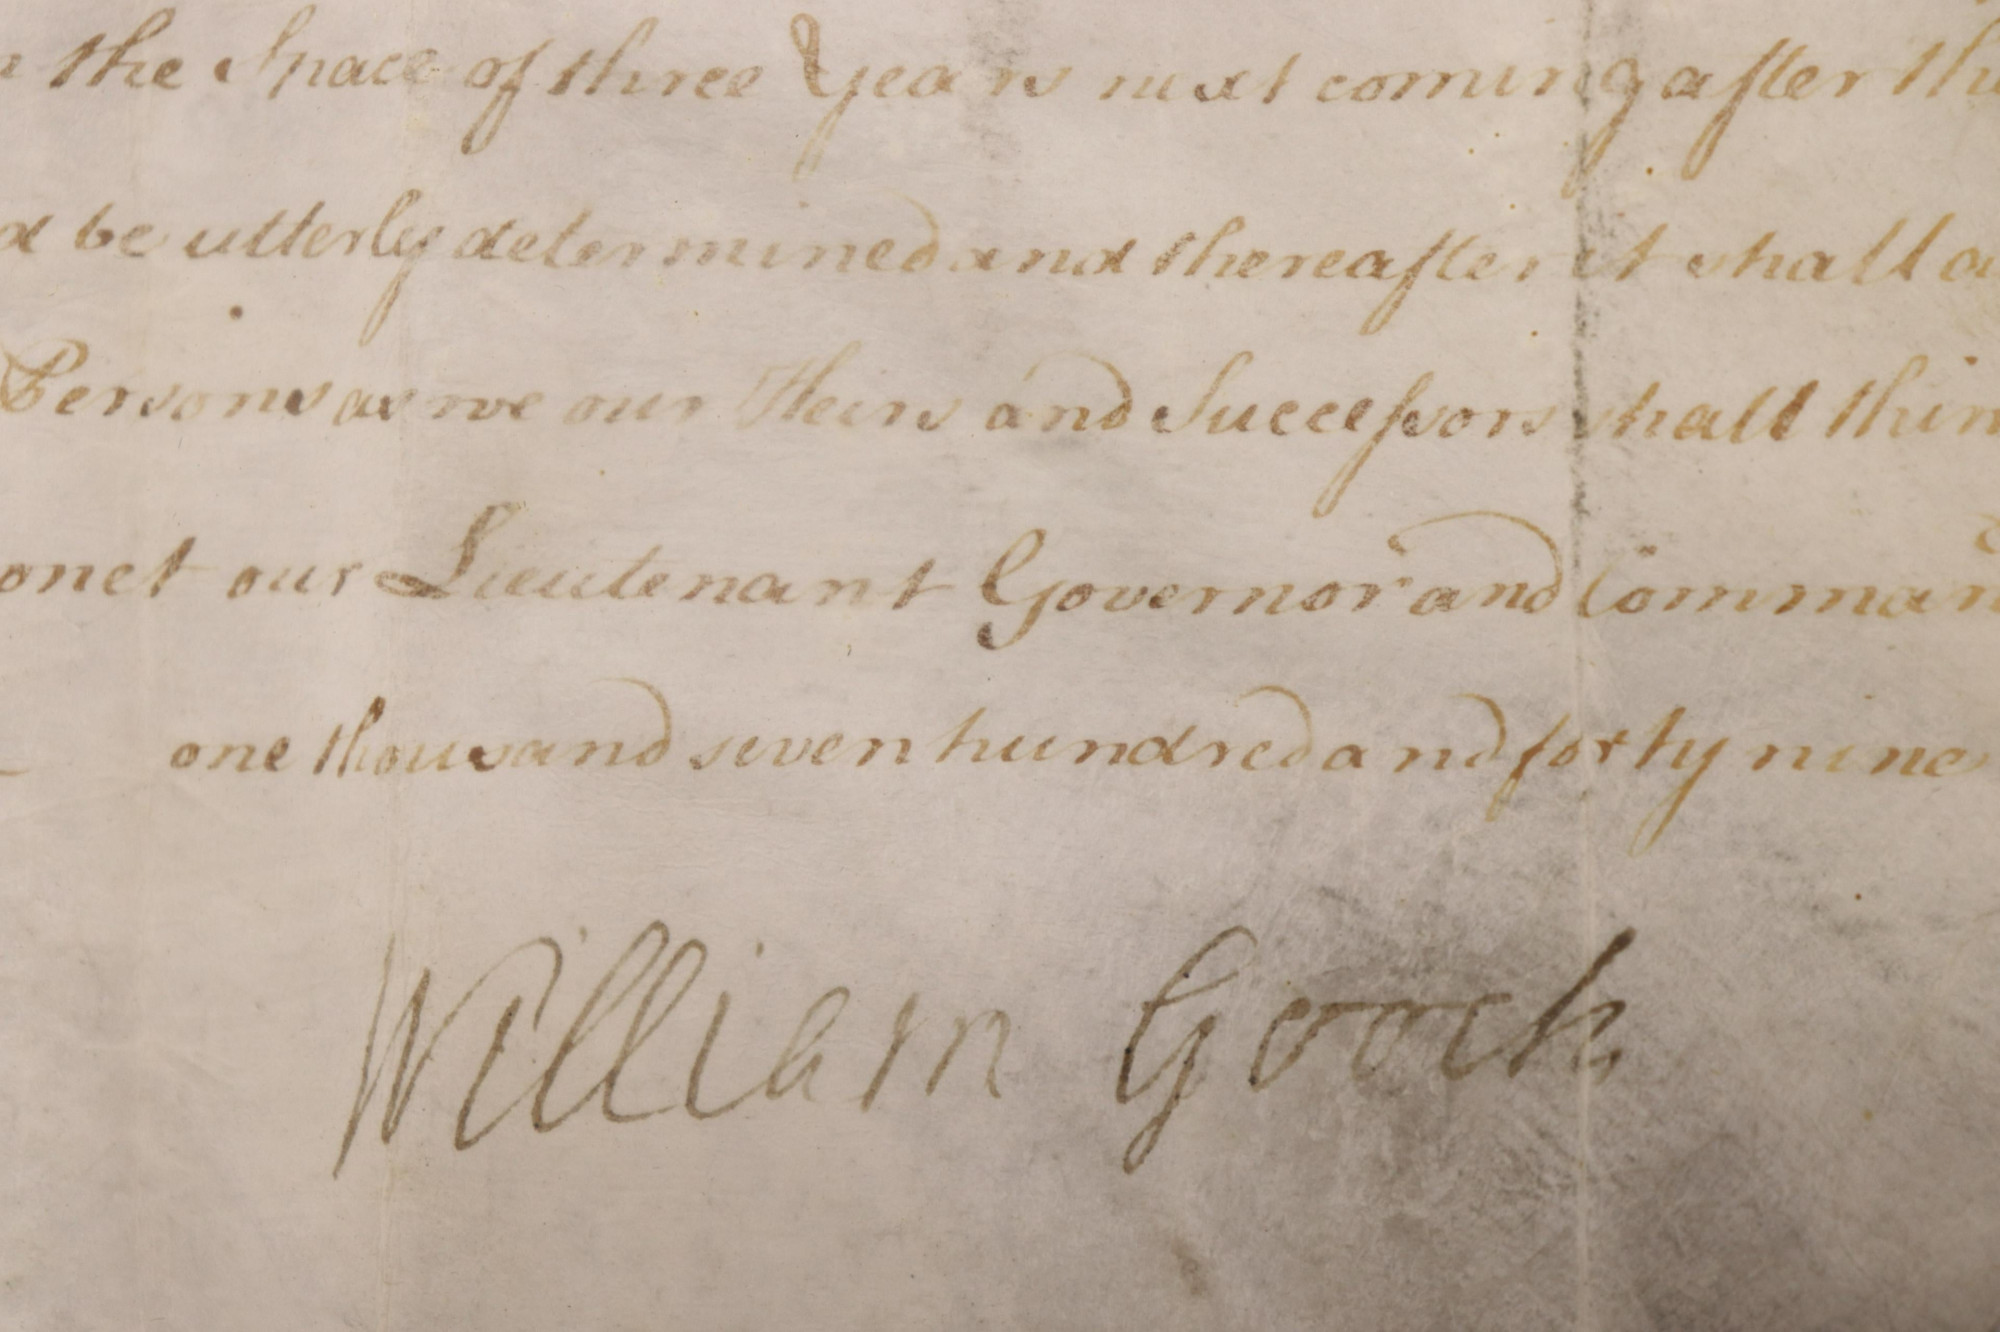 the Space of three Years next coming after the
d be utterly determined and thereafter it shall a
Persons as we our Heirs and Successors shall thin
onet our Lieutenant Governor and Comman
one thousand seven hundred and forty nine
William Gooch